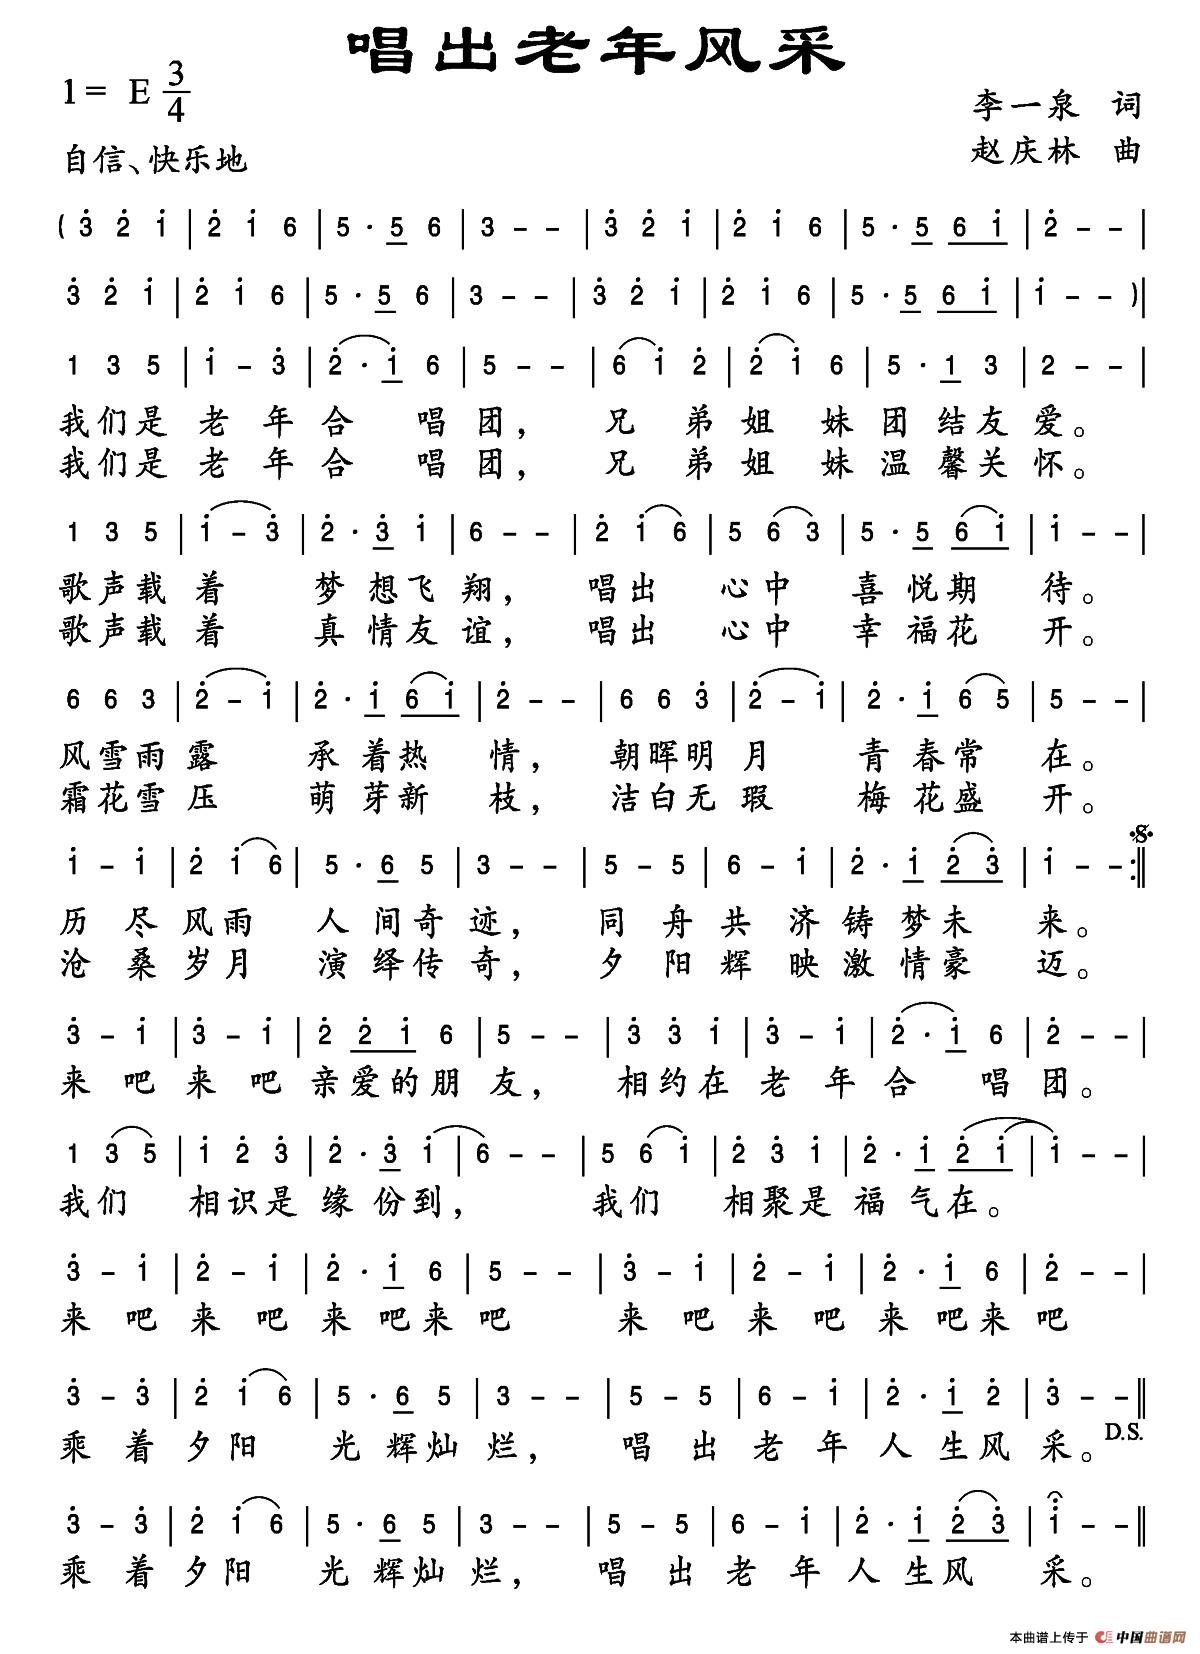 唱出老年风采
1= E 3/4
李一泉 词
自信、快乐地
赵庆林 曲
( 3̇ 2̇ 1̇ | 2̇ 1̇ 6 | 5 · 5 6 | 3 - - | 3̇ 2̇ 1̇ | 2̇ 1̇ 6 | 5 · 5 6 1̇ | 2̇ - - |
3̇ 2̇ 1̇ | 2̇ 1̇ 6 | 5 · 5 6 | 3 - - | 3̇ 2̇ 1̇ | 2̇ 1̇ 6 | 5 · 5 6 1̇ | 1̇ - - )|
1 3 5 | 1̇ - 3̇ | 2̇ · 1̇ 6 | 5 - - | 6 1̇ 2̇ | 2̇ 1̇ 6 | 5 · 1 3 | 2 - - |
我们是 老 年 合 唱 团， 兄 弟 姐 妹 团 结 友 爱。
我们是 老 年 合 唱 团， 兄 弟 姐 妹 温 馨 关 怀。
1 3 5 | 1̇ - 3̇ | 2̇ · 3̇ 1̇ | 6 - - | 2̇ 1̇ 6 | 5 6 3 | 5 · 5 6 1̇ | 1̇ - - |
歌声载 着 梦 想飞 翔， 唱出 心中 喜 悦期 待。
歌声载 着 真 情友 谊， 唱出 心中 幸 福花 开。
6 6 3 | 2̇ - 1̇ | 2̇ · 1̇ 6 1̇ | 2̇ - - | 6 6 3̇ | 2̇ - 1̇ | 2̇ · 1̇ 6 5 | 5 - - |
风雪雨 露 承 着热 情， 朝晖明 月 青 春常 在。
霜花雪 压 萌 芽新 枝， 洁白无 瑕 梅 花盛 开。
1̇ - 1̇ | 2̇ 1̇ 6 | 5 · 6 5 | 3 - - | 5 - 5 | 6 - 1̇ | 2̇ · 1̇ 2̇ 3̇ | 1̇ - - :||
历 尽 风雨 人 间奇 迹， 同 舟 共 济 铸 梦未 来。
沧 桑 岁月 演 绎传 奇， 夕 阳 辉 映 激 情豪 迈。
3̇ - 1̇ | 3̇ - 1̇ | 2̇ 2̇ 1̇ 6 | 5 - - | 3̇ 3̇ 1̇ | 3̇ - 1̇ | 2̇ · 1̇ 6 | 2̇ - - |
来 吧 来 吧 亲爱的朋 友， 相约在 老 年 合 唱 团。
1 3 5 | 1̇ 2̇ 3̇ | 2̇ · 3̇ 1̇ | 6 - - | 5 6 1̇ | 2̇ 3̇ 1̇ | 2̇ · 1̇ 2̇ 1̇ | 1̇ - - |
我们 相识是 缘 份到， 我们 相聚是 福 气在。
3̇ - 1̇ | 2̇ - 1̇ | 2̇ · 1̇ 6 | 5 - - | 3̇ - 1̇ | 2̇ - 1̇ | 2̇ · 1̇ 6 | 2̇ - - |
来 吧 来 吧 来 吧来 吧 来 吧 来 吧 来 吧来 吧
3̇ - 3̇ | 2̇ 1̇ 6 | 5 · 6 5 | 3 - - | 5 - 5 | 6 - 1̇ | 2̇ · 1̇ 2̇ | 3̇ - - ||
乘 着 夕阳 光 辉灿 烂， 唱 出 老 年 人 生风 采。 D.S.
3̇ - 3̇ | 2̇ 1̇ 6 | 5 · 6 5 | 3 - - | 5 - 5 | 6 - 1̇ | 2̇ · 1̇ 2̇ 3̇ | 1̇ - - ||
乘 着 夕阳 光 辉灿 烂， 唱 出 老 年 人 生风 采。
本曲谱上传于 中国曲谱网